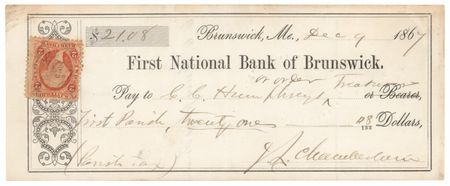 $21.08 Brunswick, Me., Dec 9 1867
First National Bank of Brunswick.
or order Treasurer
Pay to C. C. Humphreys ^ or Bearer,
First Parish, twenty one 08/100 Dollars,
(Parish Tax) J L Chamberlain